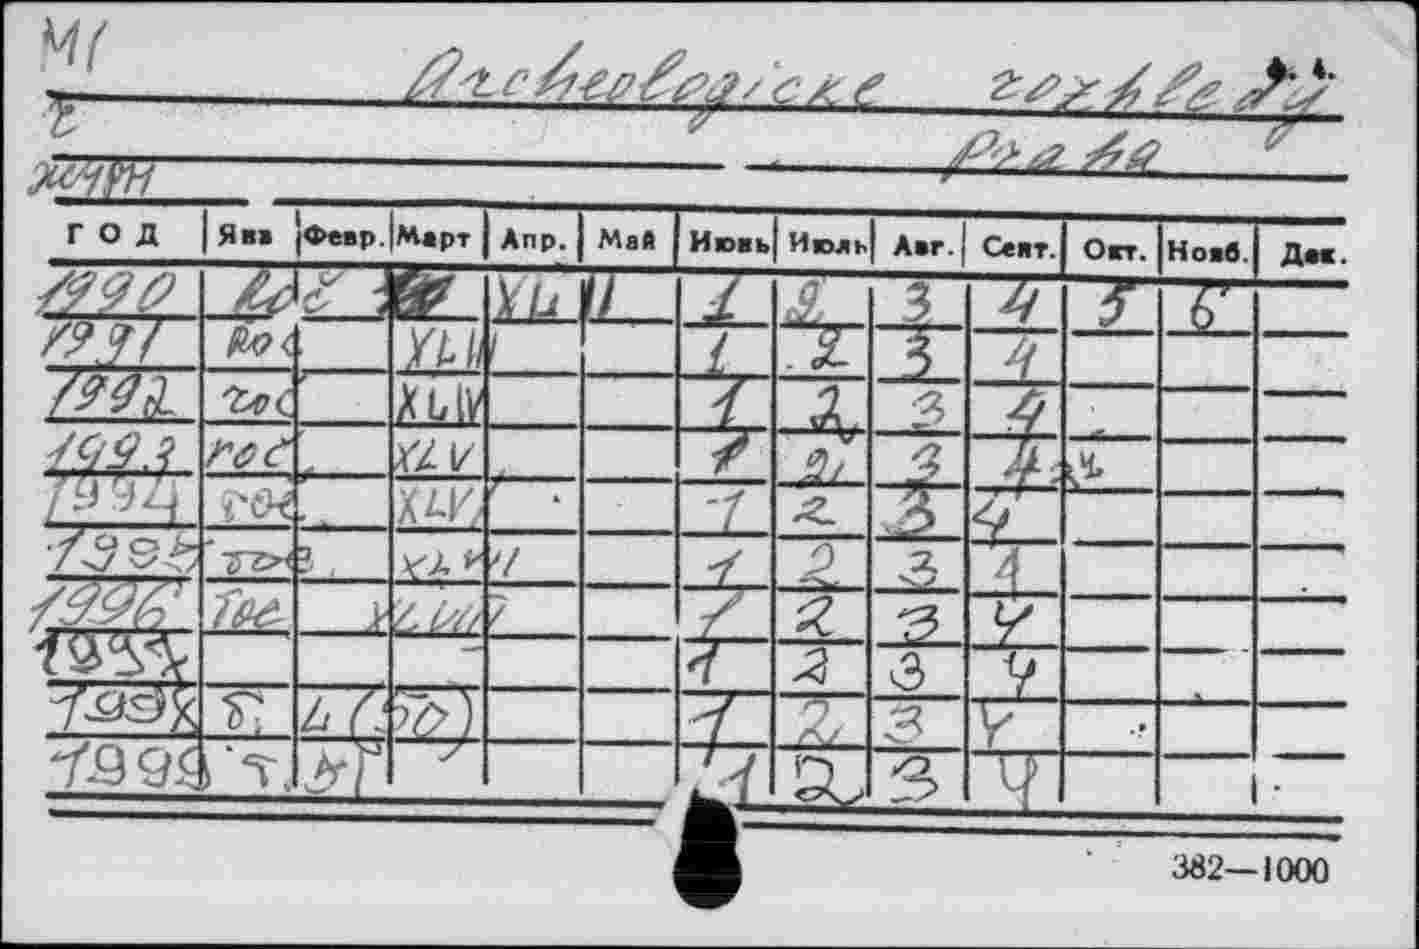 Archeologické rozhledy
Praha
журн
ГОД Янв Февр. Март Апр. Май Июнь Июль Авг. Сент. Окт. Нояб. Дек.
1990 1 2 3 4 5 6
1991 Roč XLIII 1 2 3 4
1992 roč XLIV 1 2 3 4
1993 roč XLV 1 2 3 4
1994 roč XLVI 1 2 3 4
1995 XLVII 1 2 3 4
1996 XLVIII 1 2 3 4
1997 1 2 3 4
1998 т. (50) 1 2 3 4
1999 т. 51 1 2 3 4
382—1000